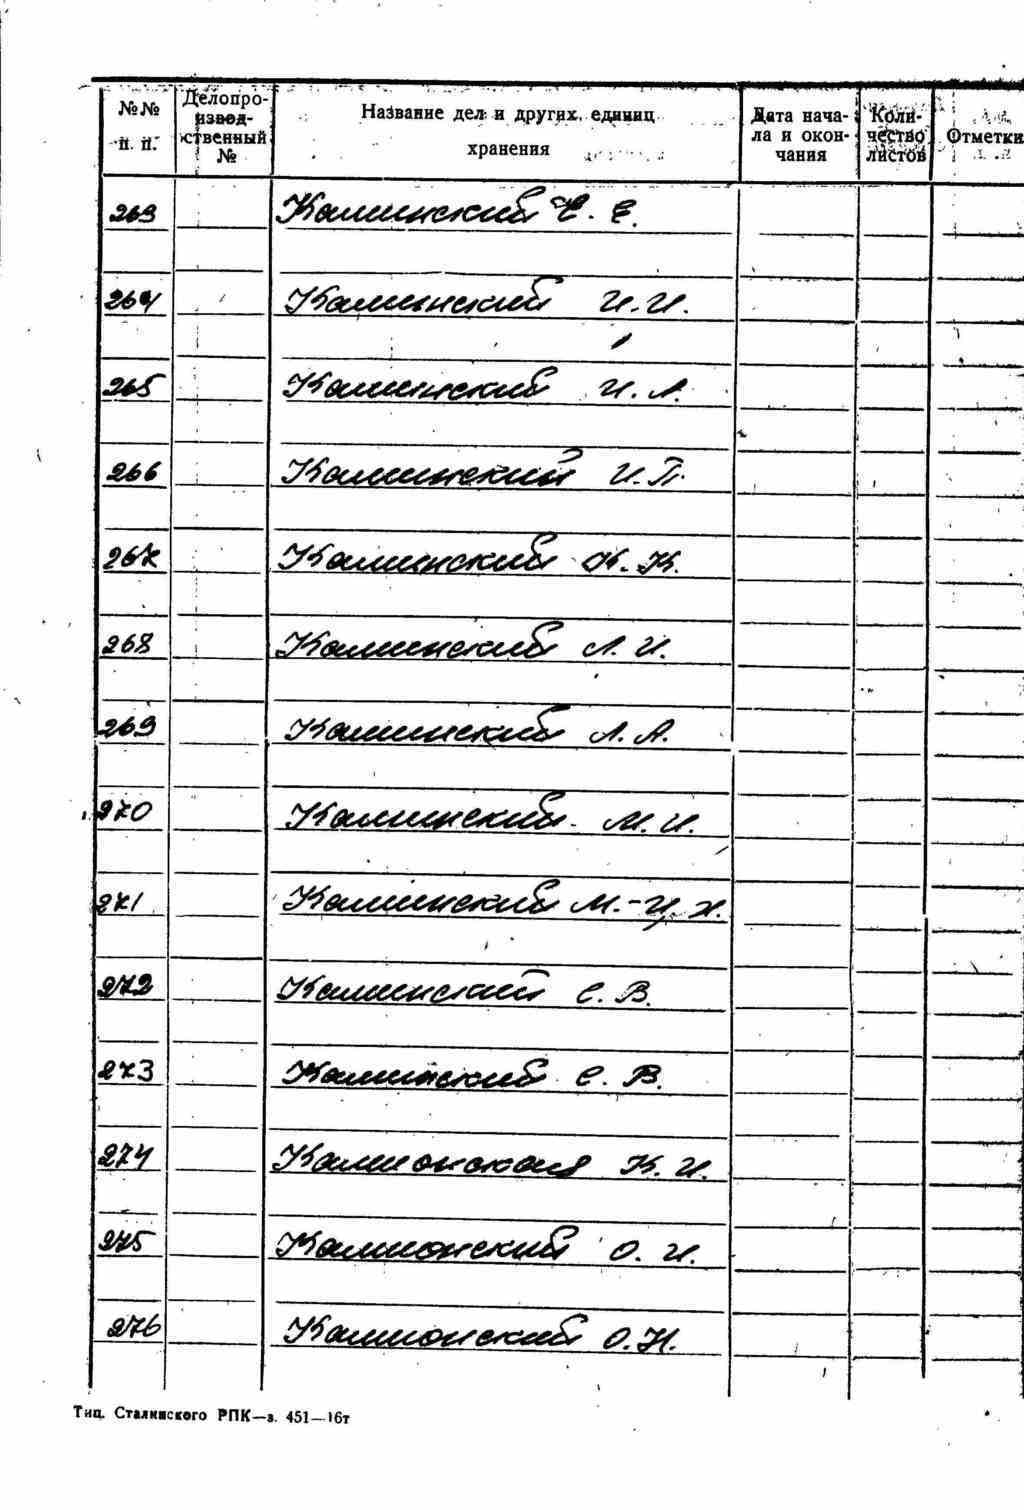 №№ п. п.
Делопро-
извод-
ственный
№
Название дел и других единиц
хранения
Дата нача-
ла и окон-
чания
Коли-
чество
листов
Отметки
263 Каминский Е. Е.
264 Каминский И. И.
265 Каминский И. Л.
266 Каминский И. П.
267 Каминский К. К.
268 Каминский Л. И.
269 Каминский Л. А.
270 Каминский М. И.
271 Каминский М.-И. Х.
272 Каминский С. В.
273 Каминский С. В.
274 Камионская К. И.
275 Камионский О. И.
276 Камионский О. Н.
Тип. Сталинского РПК—з. 451—16т